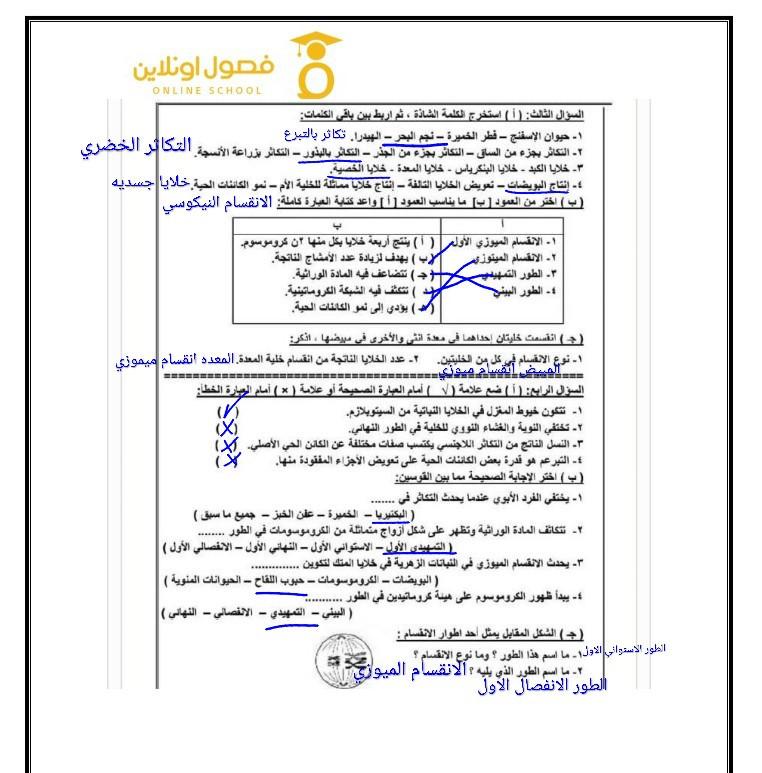 فصول اونلاين
ONLINE SCHOOL
السؤال الثالث: ( أ ) استخرج الكلمة الشاذة ، ثم اربط بين باقي الكلمات:
١- حيوان الإسفنج – فطر الخميرة – نجم البحر – الهيدرا. تكاثر بالتبرع
٢- التكاثر بجزء من الساق – التكاثر بجزء من الجذر – التكاثر بالبذور – التكاثر بزراعة الأنسجة. التكاثر الخضري
٣- خلايا الكبد - خلايا البنكرياس - خلايا المعدة - خلايا الخصية.
٤- إنتاج البويضات – تعويض الخلايا التالفة – إنتاج خلايا مماثلة للخلية الأم – نمو الكائنات الحية. خلايا جسديه
( ب ) اختر من العمود [ ب] ما يناسب العمود [ أ ] واعد كتابة العبارة كاملة: الانقسام النيكوسي
أ ب
١- الانقسام الميوزي الأول ( أ ) ينتج أربعة خلايا بكل منها ٢ن كروموسوم.
٢- الانقسام الميتوزي ( ب ) يهدف لزيادة عدد الأمشاج الناتجة.
٣- الطور التمهيدي ( جـ ) تتضاعف فيه المادة الوراثية.
٤- الطور البيني ( د ) تتكثف فيه الشبكة الكروماتينية.
( هـ ) يؤدي إلى نمو الكائنات الحية.
( جـ ) انقسمت خليتان إحداهما في معدة انثى والأخرى في مبيضها ، اذكر:
١- نوع الانقسام في كل من الخليتين. ٢- عدد الخلايا الناتجة من انقسام خلية المعدة. المعده انقسام ميموزي
المبيض انقسام ميوزي
السؤال الرابع: ( أ ) ضع علامة ( √ ) أمام العبارة الصحيحة أو علامة ( × ) أمام العبارة الخطأ:
١- تتكون خيوط المغزل في الخلايا النباتية من السيتوبلازم. ( ✓ )
٢- تختفي النوية والغشاء النووي للخلية في الطور النهائي. ( X )
٣- النسل الناتج من التكاثر اللاجنسي يكتسب صفات مختلفة عن الكائن الحي الأصلي. ( X )
٤- التبرعم هو قدرة بعض الكائنات الحية على تعويض الأجزاء المفقودة منها. ( X )
( ب ) اختر الإجابة الصحيحة مما بين القوسين:
١- يختفي الفرد الأبوي عندما يحدث التكاثر في .......
( البكتيريا – الخميرة – عفن الخبز – جميع ما سبق )
٢- تتكاثف المادة الوراثية وتظهر على شكل أزواج متماثلة من الكروموسومات في الطور ........
( التمهيدي الأول – الاستوائي الأول – النهائي الأول – الانفصالي الأول )
٣- يحدث الانقسام الميوزي في النباتات الزهرية في خلايا المتك لتكوين ..............
( البويضات – الكروموسومات – حبوب اللقاح – الحيوانات المنوية )
٤- يبدأ ظهور الكروموسوم على هيئة كروماتيدين في الطور ...........
( البيني – التمهيدي – الانفصالي – النهائي )
( جـ ) الشكل المقابل يمثل أحد اطوار الانقسام :
١- ما اسم هذا الطور ؟ وما نوع الانقسام ؟ الطور الاستواني الاول
٢- ما اسم الطور الذي يليه ؟ الانقسام الميوزي
الطور الانفصال الاول